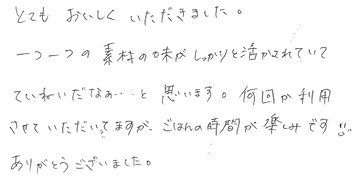 とても おいしく いただきました。
一つ一つの 素材の味が しっかりと活かされていて
ていねいだなぁ…と 思います。何回か利用
させていただいてますが、ごはんの時間が 楽しみです
ありがとうございました。